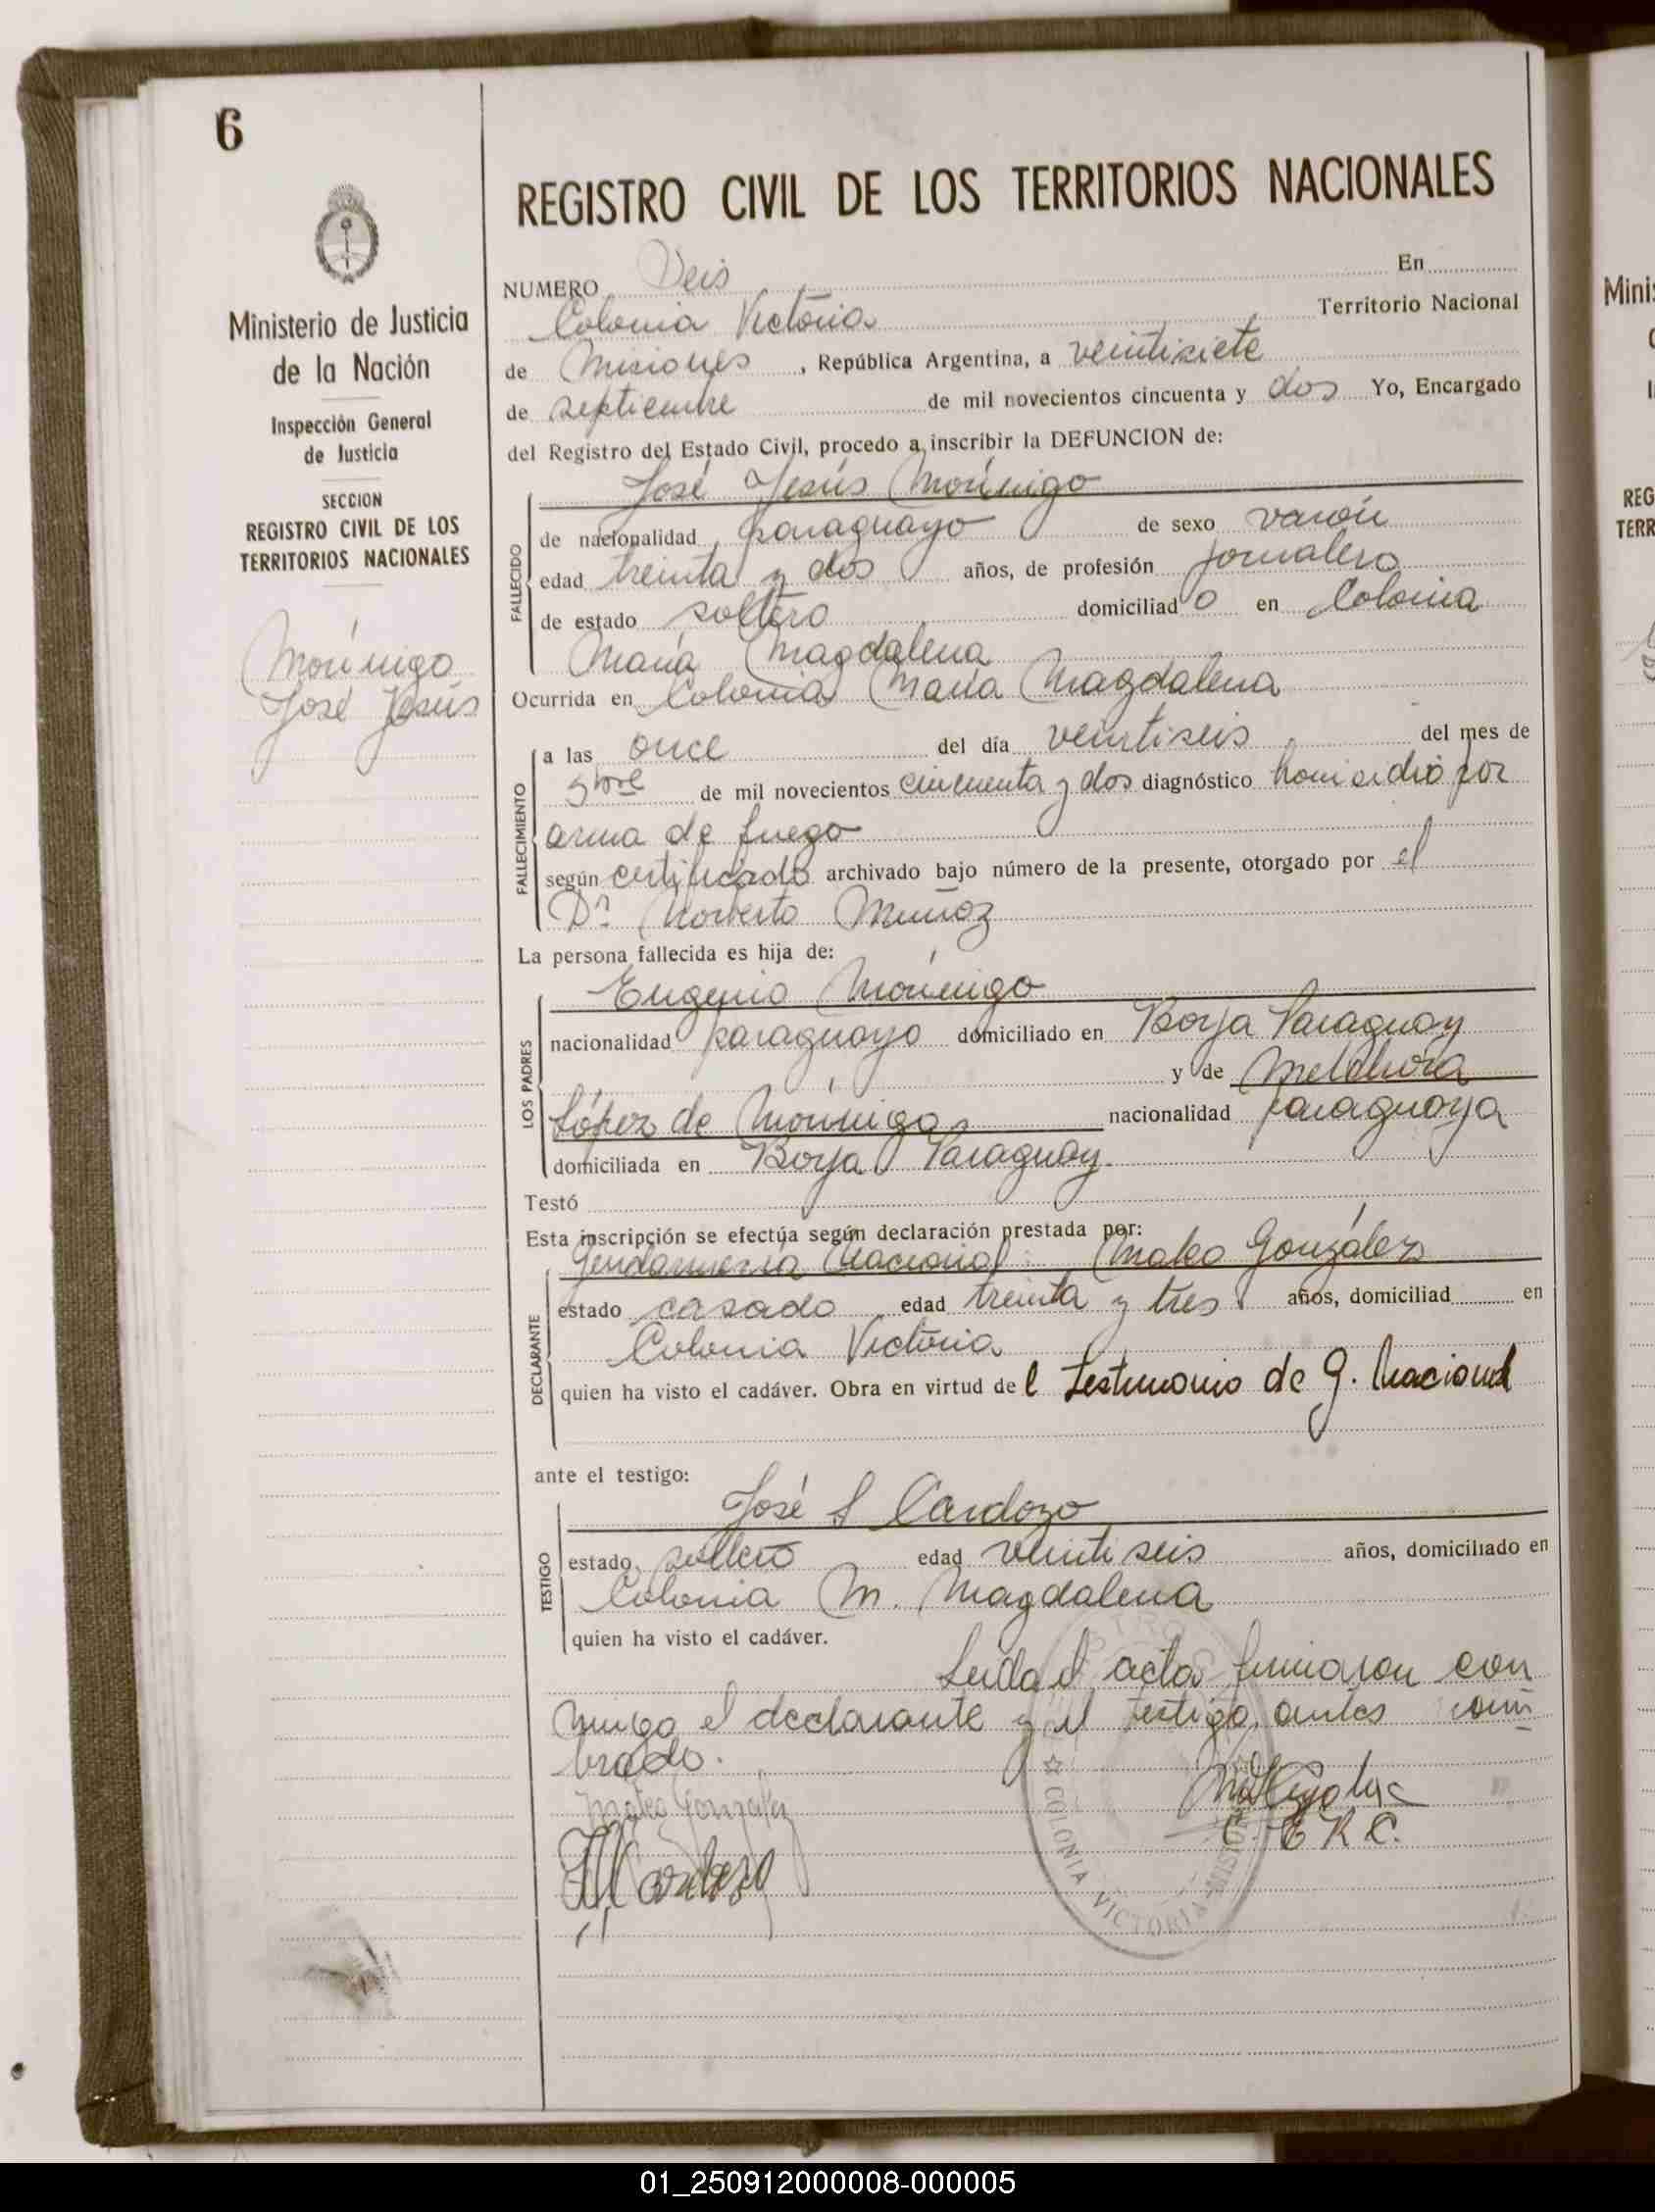 6
REGISTRO CIVIL DE LOS TERRITORIOS NACIONALES
Ministerio de Justicia
de la Nación
Inspección General
de Justicia
SECCION
REGISTRO CIVIL DE LOS
TERRITORIOS NACIONALES
Morínigo
José Jesús
NUMERO Seis En
Colonia Victoria Territorio Nacional
de Misiones, República Argentina, a veintisiete
de septiembre de mil novecientos cincuenta y dos Yo, Encargado
del Registro del Estado Civil, procedo a inscribir la DEFUNCION de:
José Jesús Morínigo
FALLECIDO
de nacionalidad paraguayo de sexo varón
edad treinta y dos años, de profesión jornalero
de estado soltero domiciliado en Colonia
María Magdalena
Ocurrida en Colonia María Magdalena
FALLECIMIENTO
a las once del día veintiseis del mes de
9bre de mil novecientos cincuenta y dos diagnóstico homicidio por
arma de fuego
según certificado archivado bajo número de la presente, otorgado por el
Dr. Norberto Muñoz
La persona fallecida es hija de:
LOS PADRES
Eugenio Morínigo
nacionalidad paraguayo domiciliado en Borja Paraguay
y de Melchora
López de Morínigo nacionalidad paraguaya
domiciliada en Borja Paraguay
Testó
Esta inscripción se efectúa según declaración prestada por:
DECLARANTE
Gendarmería Nacional: Mateo González
estado casado edad treinta y tres años, domiciliad en
Colonia Victoria
quien ha visto el cadáver. Obra en virtud del testimonio de G. Nacional
ante el testigo:
TESTIGO
José S Cardozo
estado soltero edad veinti seis años, domiciliado en
Colonia M. Magdalena
quien ha visto el cadáver.
Leida el acta firmaron con
migo el declarante y el testigo antes nom
brado.
Mateo Gonzalez
E R C.
JSCardozo
COLONIA VICTORIA MISIONES
Minis
REG
TERR
01_250912000008-000005